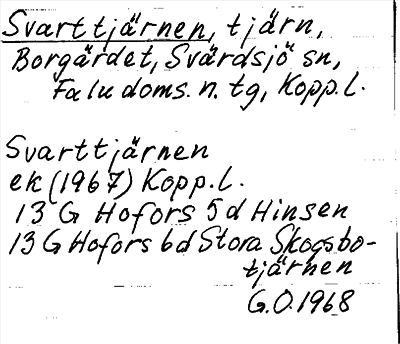 Svarttjärnen, tjärn,
Borgärdet, Svärdsjö sn,
Faludoms. n. tg, Kopp. l.
Svarttjärnen
ek (1967) Kopp. l.
13 G Hofors 5d Hinsen
13 G Hofors 6d Stora Skogsbo-
tjärnen
G.O. 1968